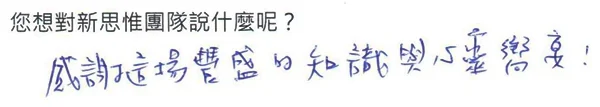 您想對新思惟團隊說什麼呢？
感謝這場豐盛的知識與心靈饗宴！